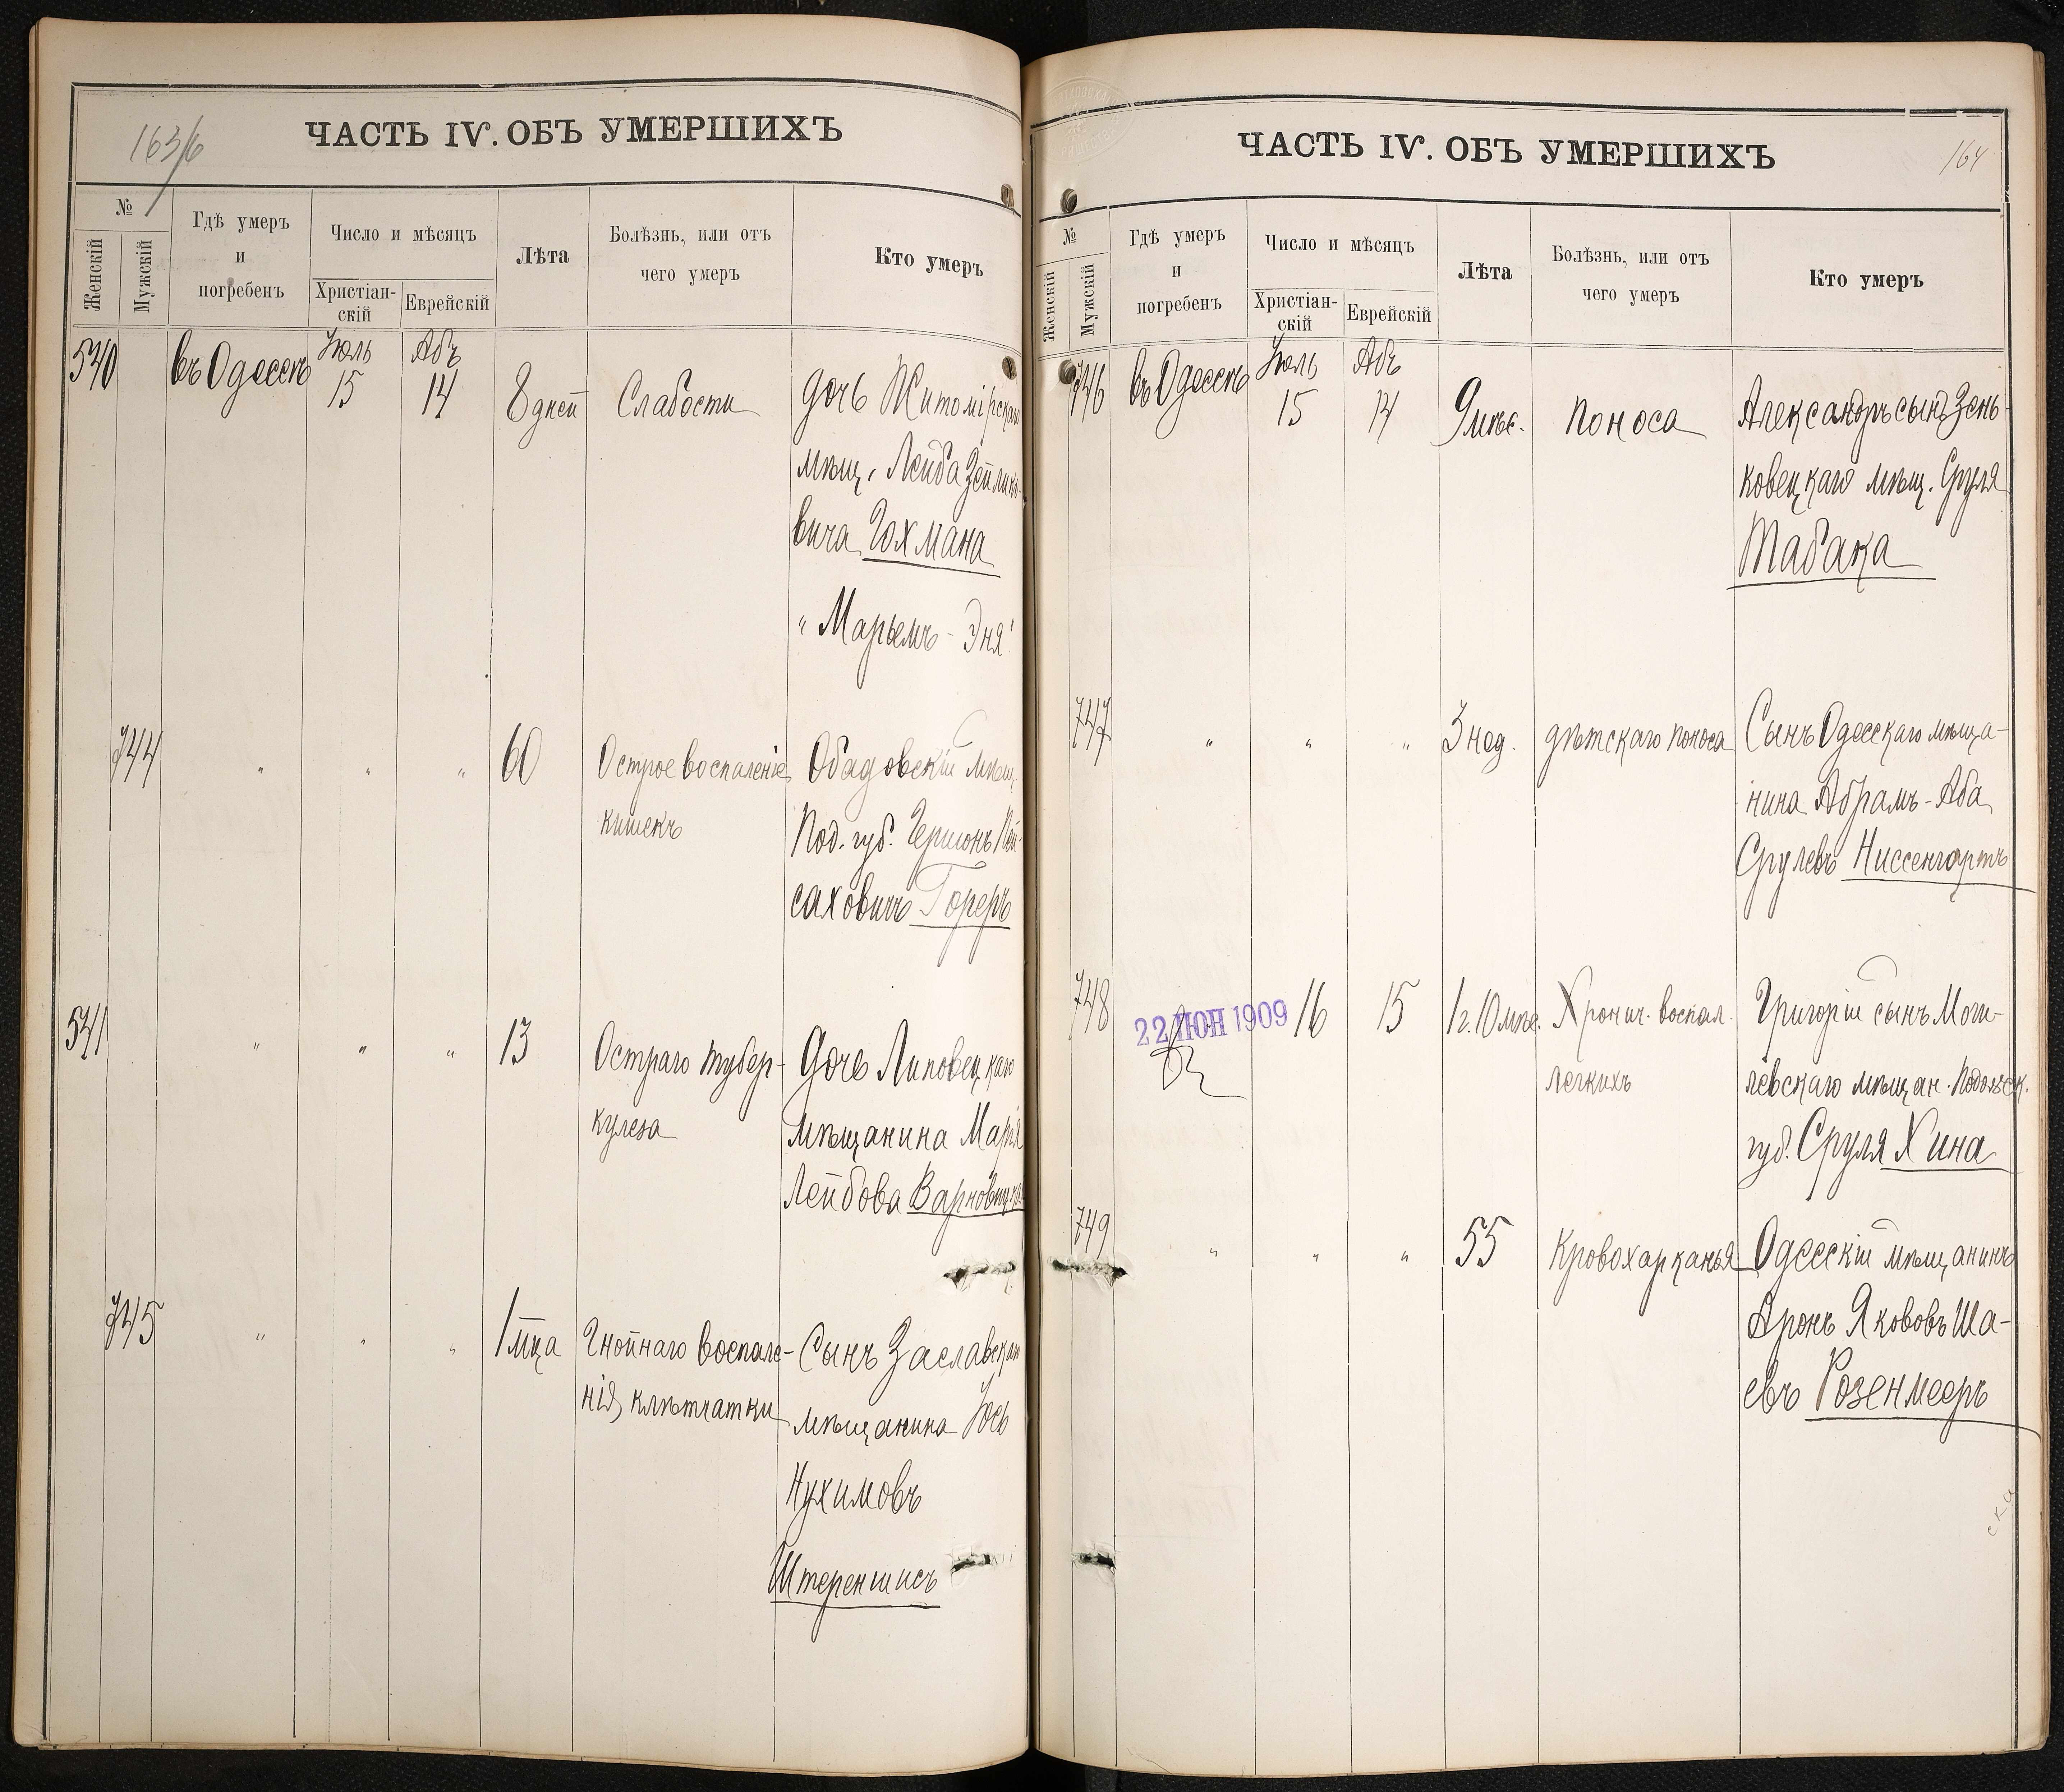 163/6
ЧАСТЬ IV. ОБЪ УМЕРШИХЪ
№
Женскій
Мужскій
Гдѣ умеръ
и
погребенъ
Число и мѣсяцъ
Христіан-
скій
Еврейскій
Лѣта
Болѣзнь, или отъ
чего умеръ
Кто умеръ
540
въ Одессѣ
Іюль
15
Абъ
14
8 дней
Слабости
дочь Житомірскаго
мѣщ. Лейба
вича Гохмана
"Марьемъ-Эня"
744
" " "
60
Острое воспаленіе
кишекъ
Ободовскій мѣщ.
Под. губ. Гершонъ Пей-
саховичъ Гореръ
541
" " "
13
Остраго тубер-
кулеза
Дочь Липовецкаго
мѣщанина Марія
Лейбова
745
" " "
1 мца
Гнойнаго воспале-
нія клѣтчатки
Сынъ Заславскаго
мѣщанина Іось
Нухимовъ
Штереншисъ
ЧАСТЬ IV. ОБЪ УМЕРШИХЪ
164
№
Женскій
Мужскій
Гдѣ умеръ
и
погребенъ
Число и мѣсяцъ
Христіан-
скій
Еврейскій
Лѣта
Болѣзнь, или отъ
чего умеръ
Кто умеръ
746
въ Одессѣ
Іюль
15
Абъ
14
9 мѣс.
Поноса
Александръ сынъ Зень-
ковецкаго мѣщ. Сруля
Табака
747
" " "
3 нед.
дѣтскаго поноса
Сынъ Одесскаго мѣща-
нина Абрамъ-Аба
Срулевъ Ниссенгартъ
748
22 ІЮН 1909
16
15
1 г. 10 мѣс.
Хронич. воспал.
легкихъ
Григорій сынъ Моги-
левскаго мѣщан. Подольск.
губ. Сруля Хина
749
" " "
55
Кровохарканья
Одесскій мѣщанинъ
Аронъ Якововъ Ша-
евъ Розенмееръ
ска